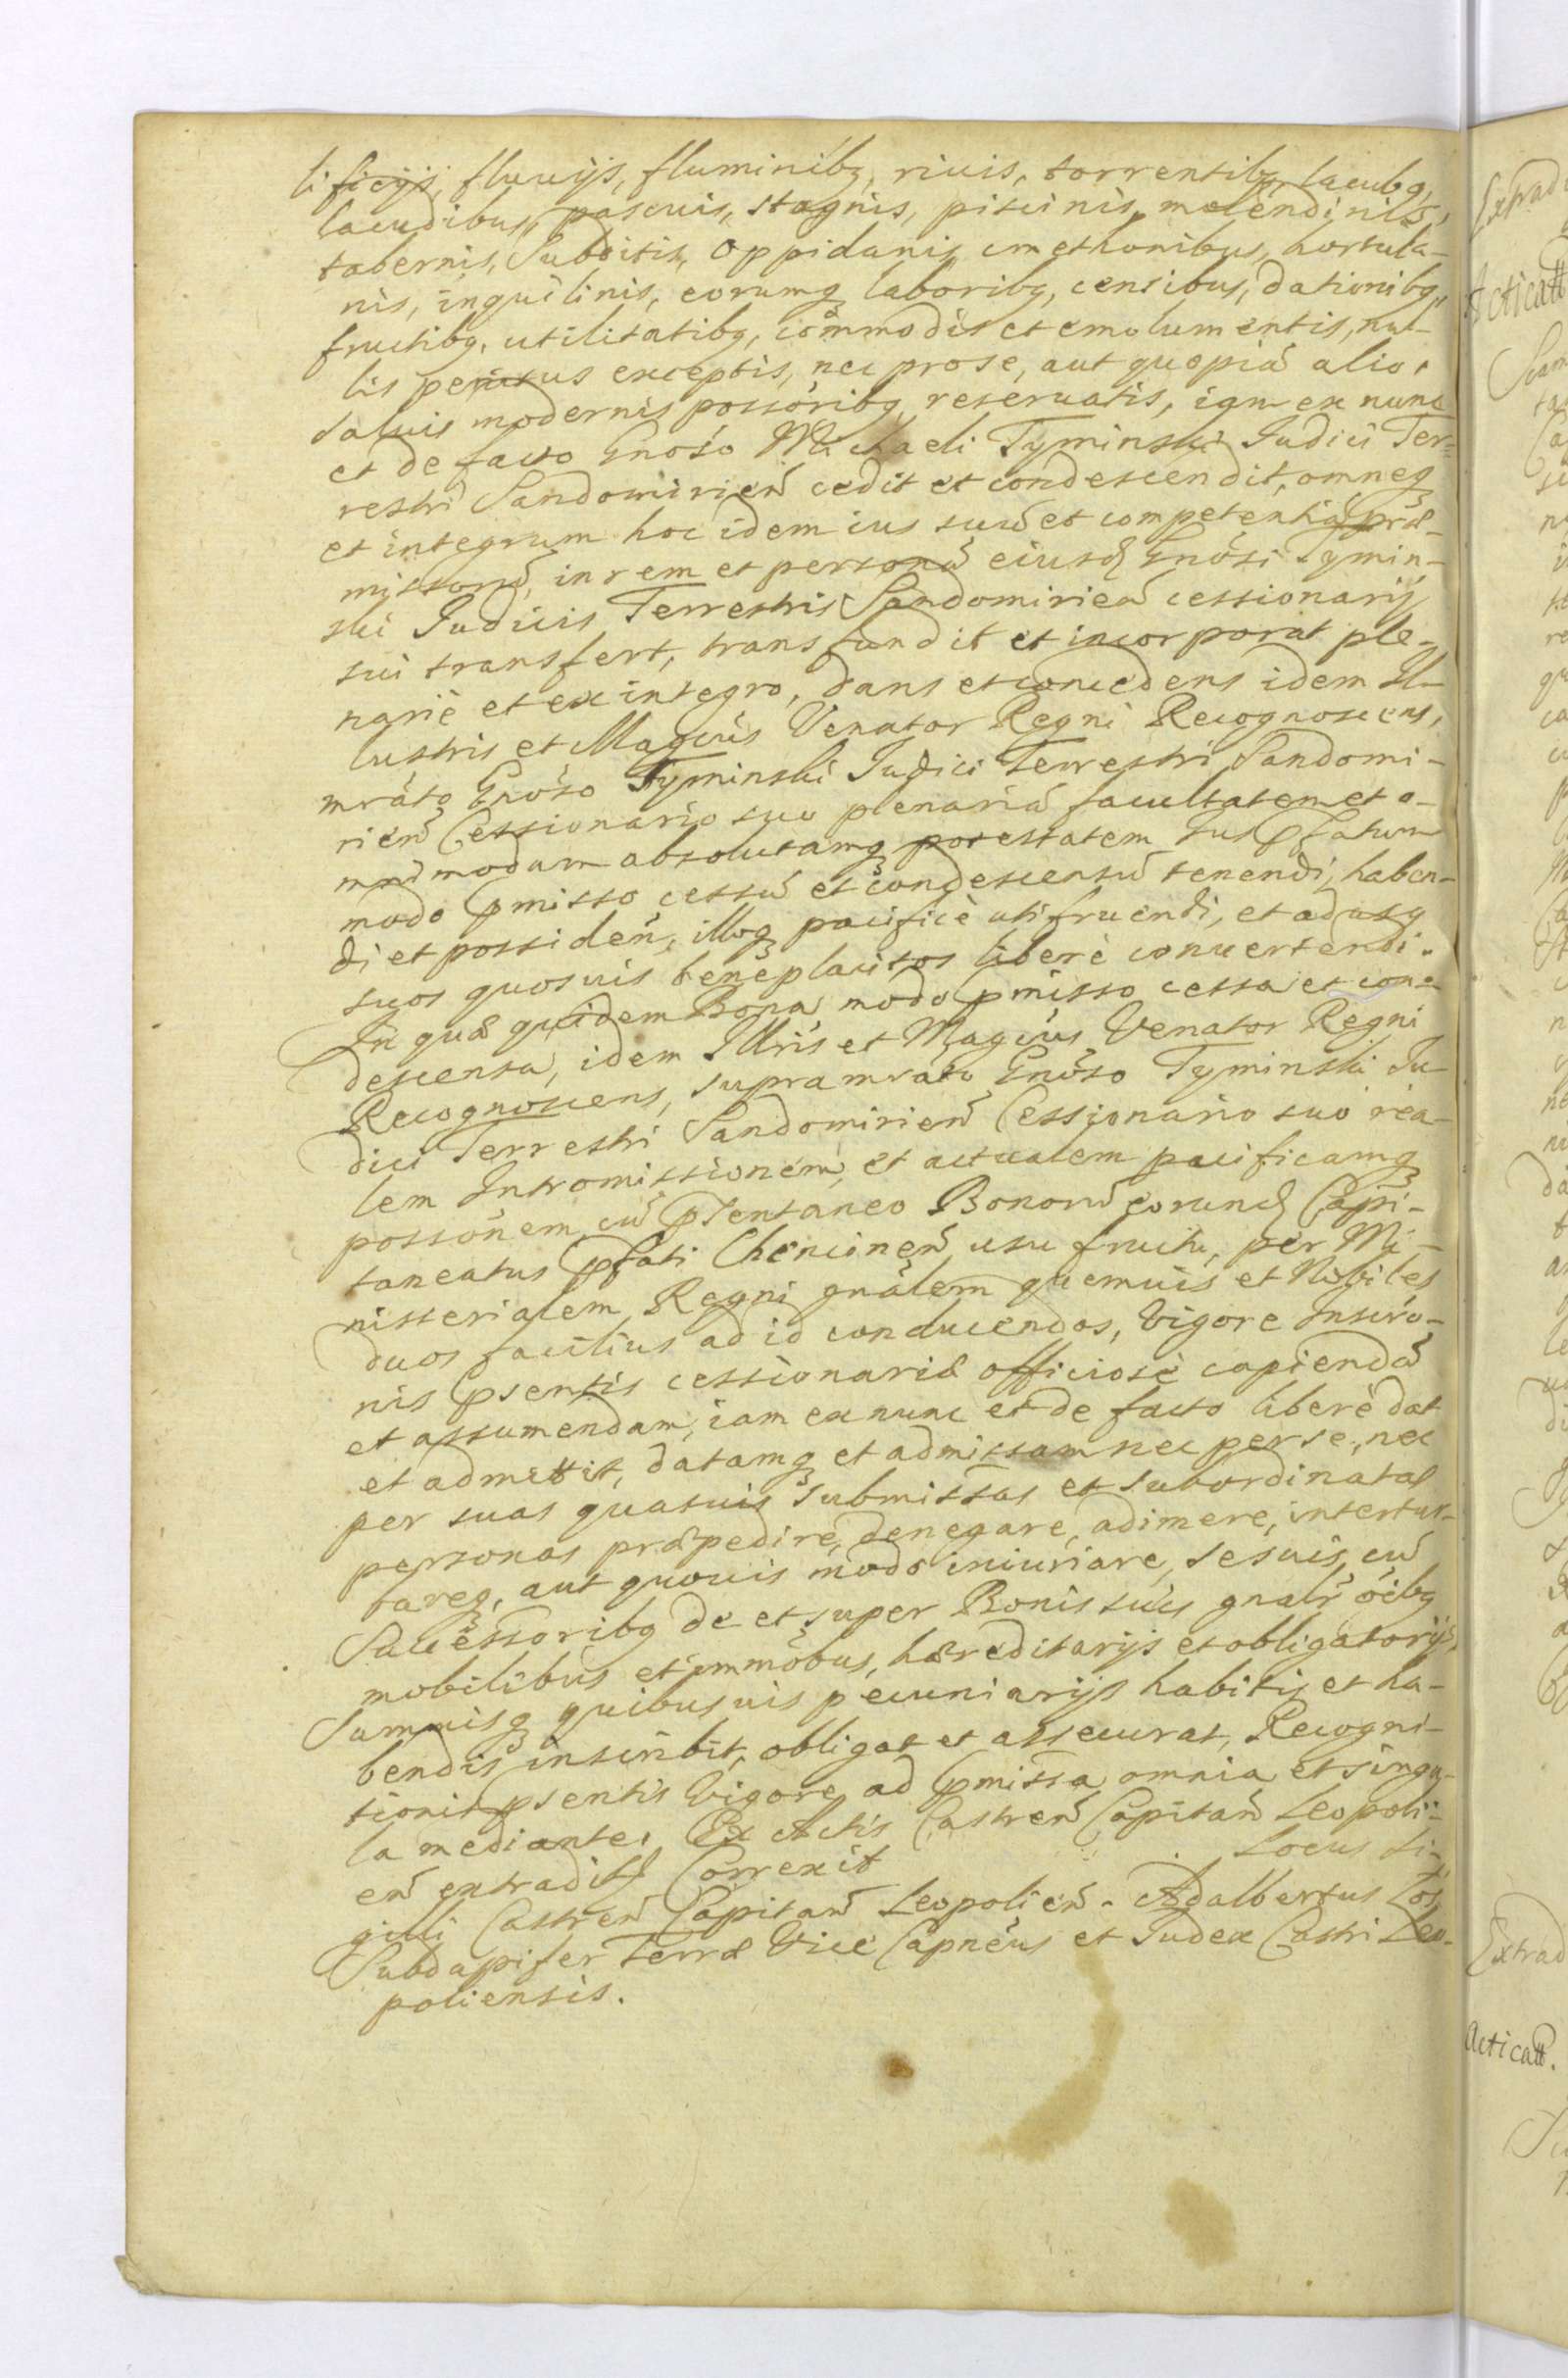 lificijs, fluuijs, fluminibq, riuis, torrentibq, lacubq,
lacudibus, pascuis, stagnis, piscinis, molendinis,
tabernis, Subditis, Oppidanis, cmethonibus, hortula-
nis, inquilinis, eorumq laboribq, censibus, dationibq,
fructibq, utilitatibq, commodis et emolumentis, nul-
lis penitus exceptis, nec pro se, aut quopiã alio,
saluis modernis possoribq reseruatis, iam ex nunc
et de facto Gnoso Michaeli Tyminski Judici Ter-
restri Sandomirien cedit et condescendit, omneq
et integrum hoc idem ius suũ et competentiã præ-
missorũ, in rem et personã eiusd Gnosi Tymin-
ski Judicis Terrestris Sandomirien cessionarij
sui transfert, transfundit et incorporat ple-
nariè et ex integro, dans et concedens idem Il-
lustris et Magcus Venator Regni Recognoscens,
mrato Gnoso Tyminski Judici Terrestri Sandomi-
rien Cessionario suo plenariã facultatem et o-
mnimodam absolutamq potestatem Jus pfatum
modo pmisso cessũ et condescensũ tenendi, haben-
di et possiden, illoq pacificè utifruendi, et ad usq
suos quosuis beneplacitos liberè conuertendi.
In quæ quidem Bona modo pmisso cessa et con-
descensa, idem Illris et Magcus Venator Regni
Recognoscens, supramrato Gnoso Tyminski Ju-
dici Terrestri Sandomirien Cessionario suo rea-
lem Intromissionem, et actualem pacificamq
possonem cũ psentaneo Bonorũ eorund Capi-
taneatus pfati Chencinen usu fructu, per Mi-
nisterialem Regni gnalem quemuis et Nobiles
duos facilius ad id conducendos, vigore Inscro-
nis psentis cessionariæ officiosè capiendã
et assumendam, iam ex nunc et de facto liberè dat
et admittit, datamq et admissam nec per se, nec
per suas quasuis submissas et subordinatas
personas præpedire, denegare, adimere, intertur-
bareq, aut quouis modo iniuriare, se suis cũ
Successoribq de et super Bonis suis gnalr oibq
mobilibus et immobus, hæreditarijs et obligatorijs,
Summisq quibusuis pecuniarijs habitis et ha-
bendis inscribit, obligat et assecurat, Recogni-
tionis psentis vigore ad pmissa omnia et singu-
la mediante. Ex Actis Castren Capitan Leopoli-
en extradit Correxit Locus Si-
gilli Castren Capitan Leopolien. Adalbertus Łos
Subdapifer Terræ Vice Capneus et Judex Castri Leo-
poliensis.
Extrad
Acticatt
Extrad
Acticatt.